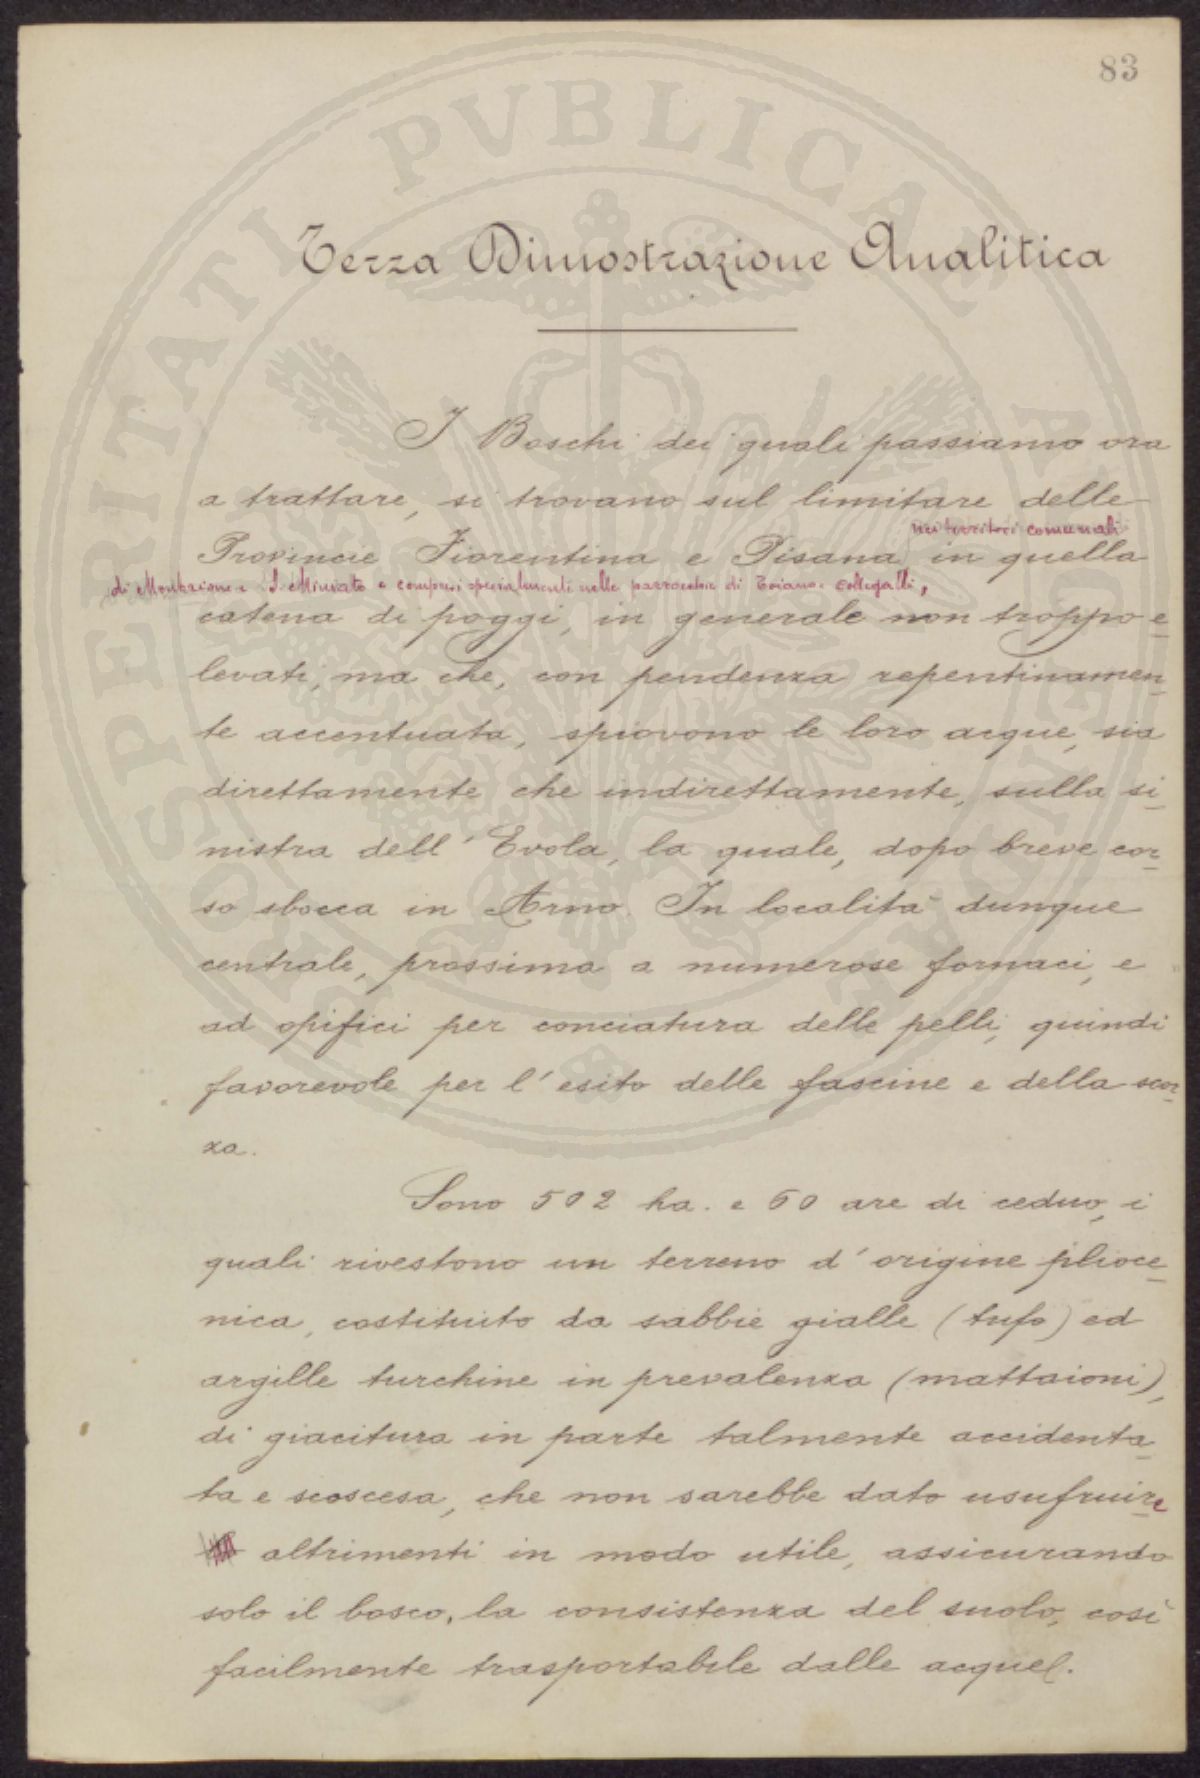 83
PROSPERITATI PVBLICAE AVGENDAE
Terza Dimostrazione Analitica
I Boschi dei quali passiamo ora
a trattare, si trovano sul limitare delle
nei territori comunali
Provincie Fiorentina e Pisana in quella
di Montaione e S. Miniato e compresi specialmente nelle parrocchie di Toiano e Collegalli,
catena di poggi, in generale non troppo e-
levati, ma che, con pendenza repentinamen-
te accentuata, spiovono le loro acque, sia
direttamente che indirettamente, sulla si-
nistra dell' Evola, la quale, dopo breve cor-
so sbocca in Arno. In località dunque
centrale, prossima a numerose fornaci, e
ad opifici per conciatura delle pelli, quindi
favorevole per l' esito delle fascine e della scor-
za.
Sono 502 ha. e 60 are di ceduo, i
quali rivestono un terreno d' origine plioce-
nica, costituito da sabbie gialle (tufo) ed
argille turchine in prevalenza (mattaioni),
di giacitura in parte talmente accidenta-
ta e scoscesa, che non sarebbe dato usufruire
altrimenti in modo utile, assicurando
solo il bosco, la consistenza del suolo, così
facilmente trasportabile dalle acque.